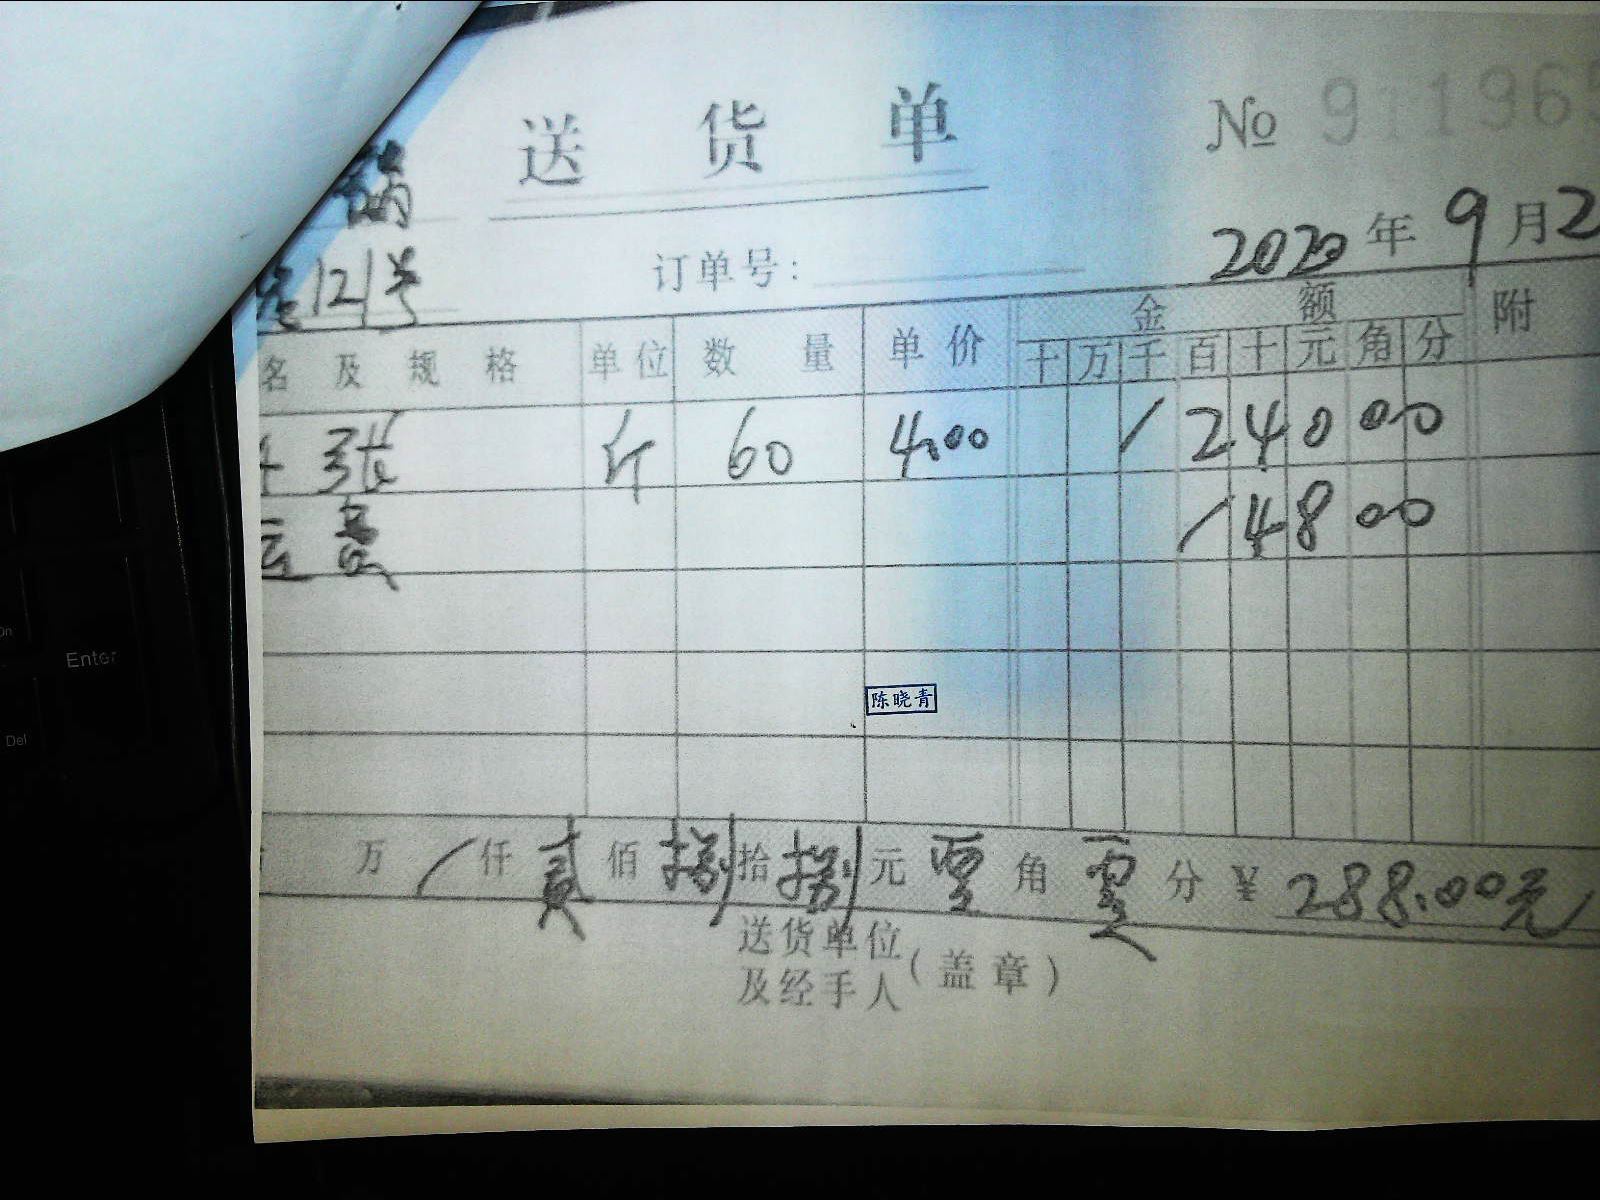 送货单
No 911965
121号
订单号:
2020年9月2
名及规格 单位 数量 单价 金额 附
十万千百十元角分
张 斤 60 4.00 / 2 4 0 0 0
/ 4 8 0 0
陈晓青
万 / 仟 贰 佰 捌 拾 捌 元 零 角 零 分 ¥ 288.00元
送货单位
及经手人(盖章)
Enter
Del